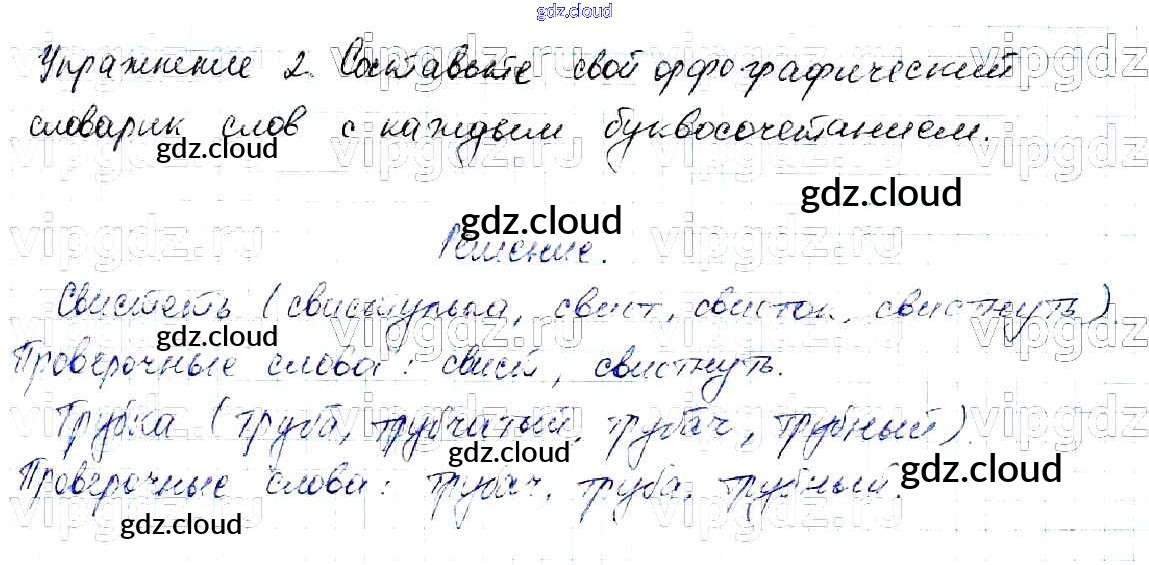 gdz.cloud
Упражнение 2. Составьте свой орфографический
словарик слов с каждым буквосочетанием.
gdz.cloud
gdz.cloud
gdz.cloud
Решение.
Свистеть (свистулька, свист, свисток, свистнуть).
gdz.cloud
Проверочные слова: свист, свистнуть.
Трубка (труба, трубчатый, трубач, трубный).
gdz.cloud
gdz.cloud
Проверочные слова: трубач, труба, трубный.
gdz.cloud
vipgdz.ru